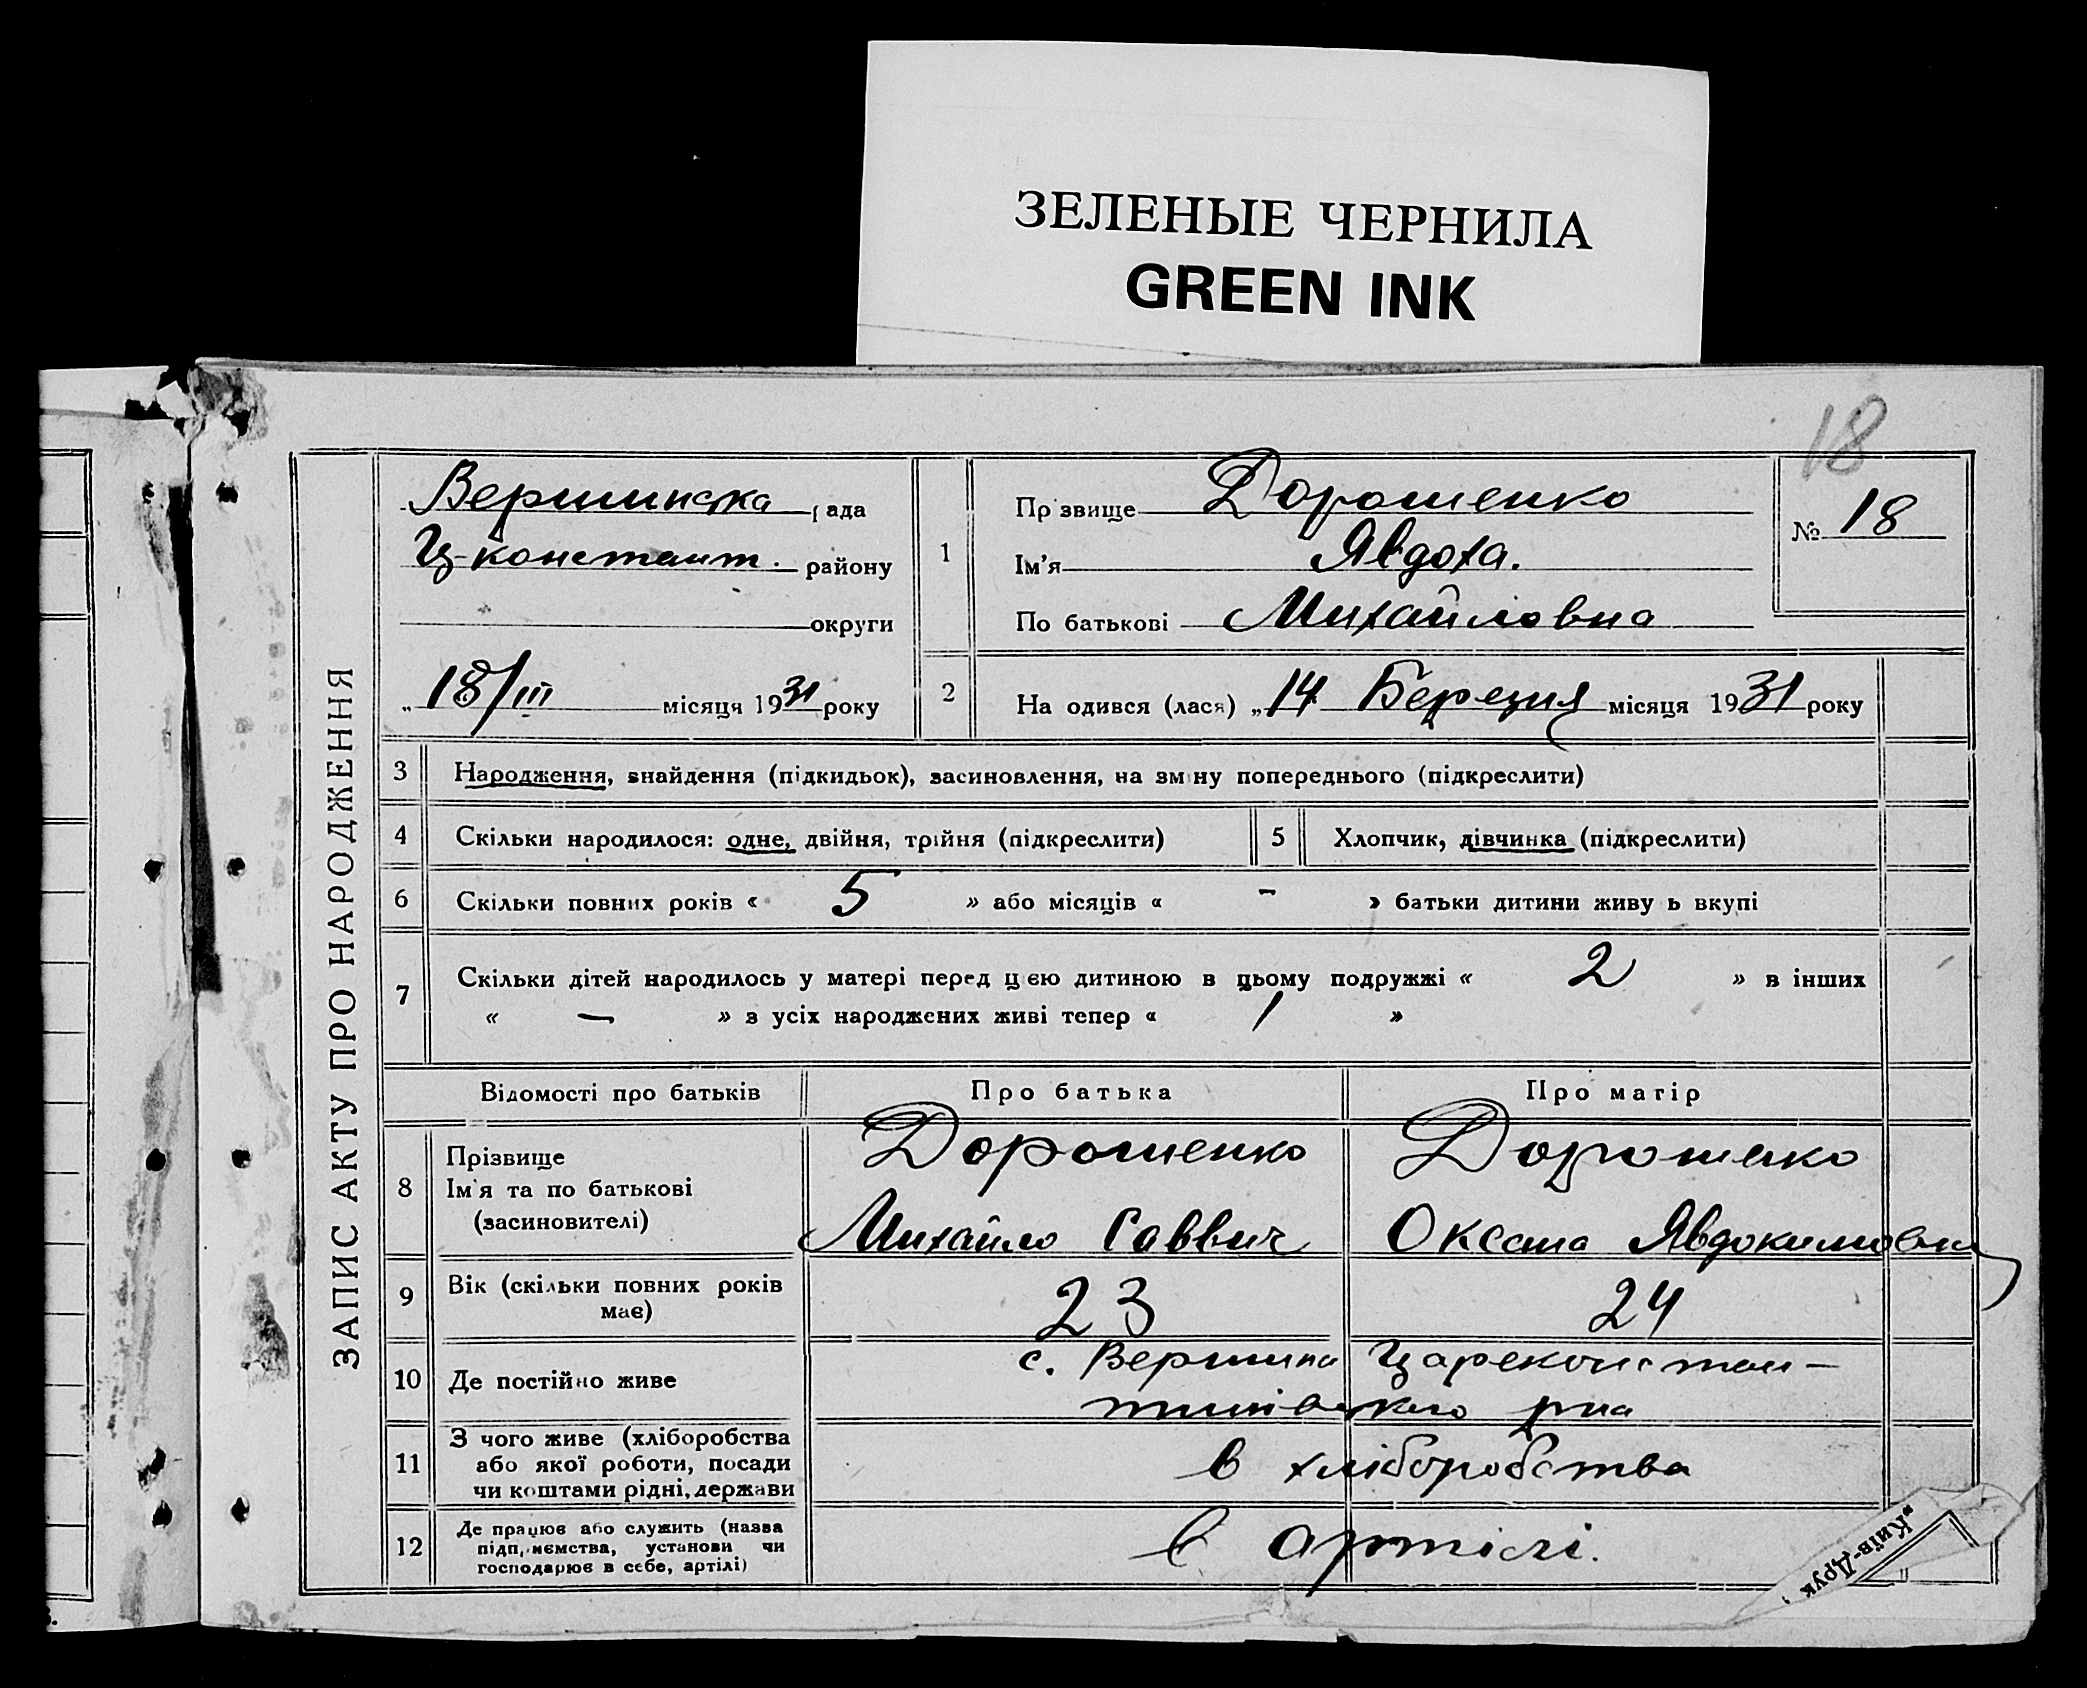 ЗЕЛЕНЫЕ ЧЕРНИЛА
GREEN INK
18
ЗАПИС АКТУ ПРО НАРОДЖЕННЯ
Вершинська рада
Ц-констант. району
округи
„ 18/III місяця 1931 року
1
Прізвище Дорошенко
Ім'я Явдоха.
По батькові Михайловна
№ 18
2
На одився (лася) „14 Березня місяця 1931 року
3 Народження, знайдення (підкидьок), засиновлення, на зміну попереднього (підкреслити)
4 Скільки народилося: одне, двійня, трійня (підкреслити)
5 Хлопчик, дівчинка (підкреслити)
6 Скільки повних років « 5 » або місяців « - » батьки дитини живу ь вкупі
7 Скільки дітей народилось у матері перед цією дитиною в цьому подружжі « 2 » в інших
« — » з усіх народжених живі тепер « 1 »
Відомості про батьків Про батька Про матір
8 Прізвище
Ім'я та по батькові
(засиновителі)
Дорошенко
Михайло Саввич
Дорошенко
Оксана Явдокимовна
9 Вік (скільки повних років
має)
23 24
10 Де постійно живе
с. Вершина Цареконстан-
тинівського р-на
11 З чого живе (хліборобства
або якої роботи, посади
чи коштами рідні, держави
в хліборобства
12 Де працює або служить (назва
підприємства, установи чи
господарює в себе, артілі)
в артілі.
„Київ-Друк"